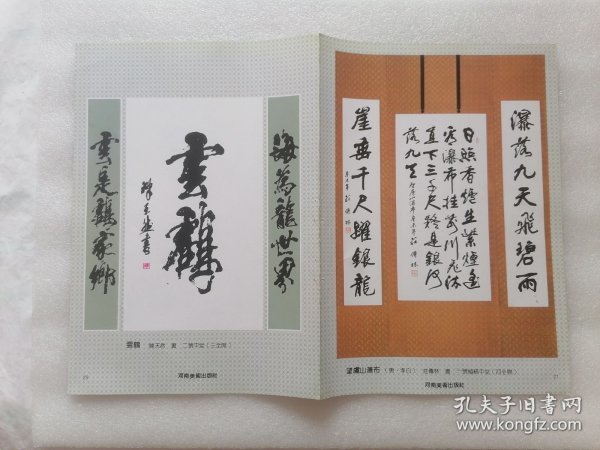 海為龍世界
雲鶴
雲是鶴家鄉
雲鶴 陳天然 書 二號中堂(三全開)
河南美術出版社
瀑落九天飛碧雨
日照香爐生紫煙遙
看瀑布挂前川飛流
直下三千尺疑是銀河
落九天
崖垂千尺躍銀龍
望廬山瀑布(唐·李白)
河南美術出版社
21
孔夫子旧书网
www.kongfz.com